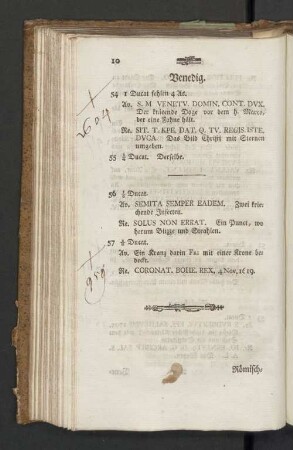 10
Venedig.
54 1 Ducat fehlin 4 As.
Av. S. M VENETV. DOMIN, CONT. DVX.
Der knieende Doge vor dem h Marco,
der eine Fahne hält.
Re. SIT. T. XPE. DAT. Q. TV. REGIS. ISTE,
DVCA. Das Bild Christi mit Sternen
umgeben.
55 ½ Ducat. Derselbe.
56 ¼ Ducat.
Av. SEMITA SEMPER EADEM. Zwei krie
chende Insecten.
Re. SOLUS NON ERRAT. Ein Punct, wo
herum Blitze und Strahlen.
57 ½ Ducat.
Av. Ein Kranz darin mit einer Krone be
deckt.
Re. CORONAT. BOHE. REX, 4 Nov, 1619.
Römisch-